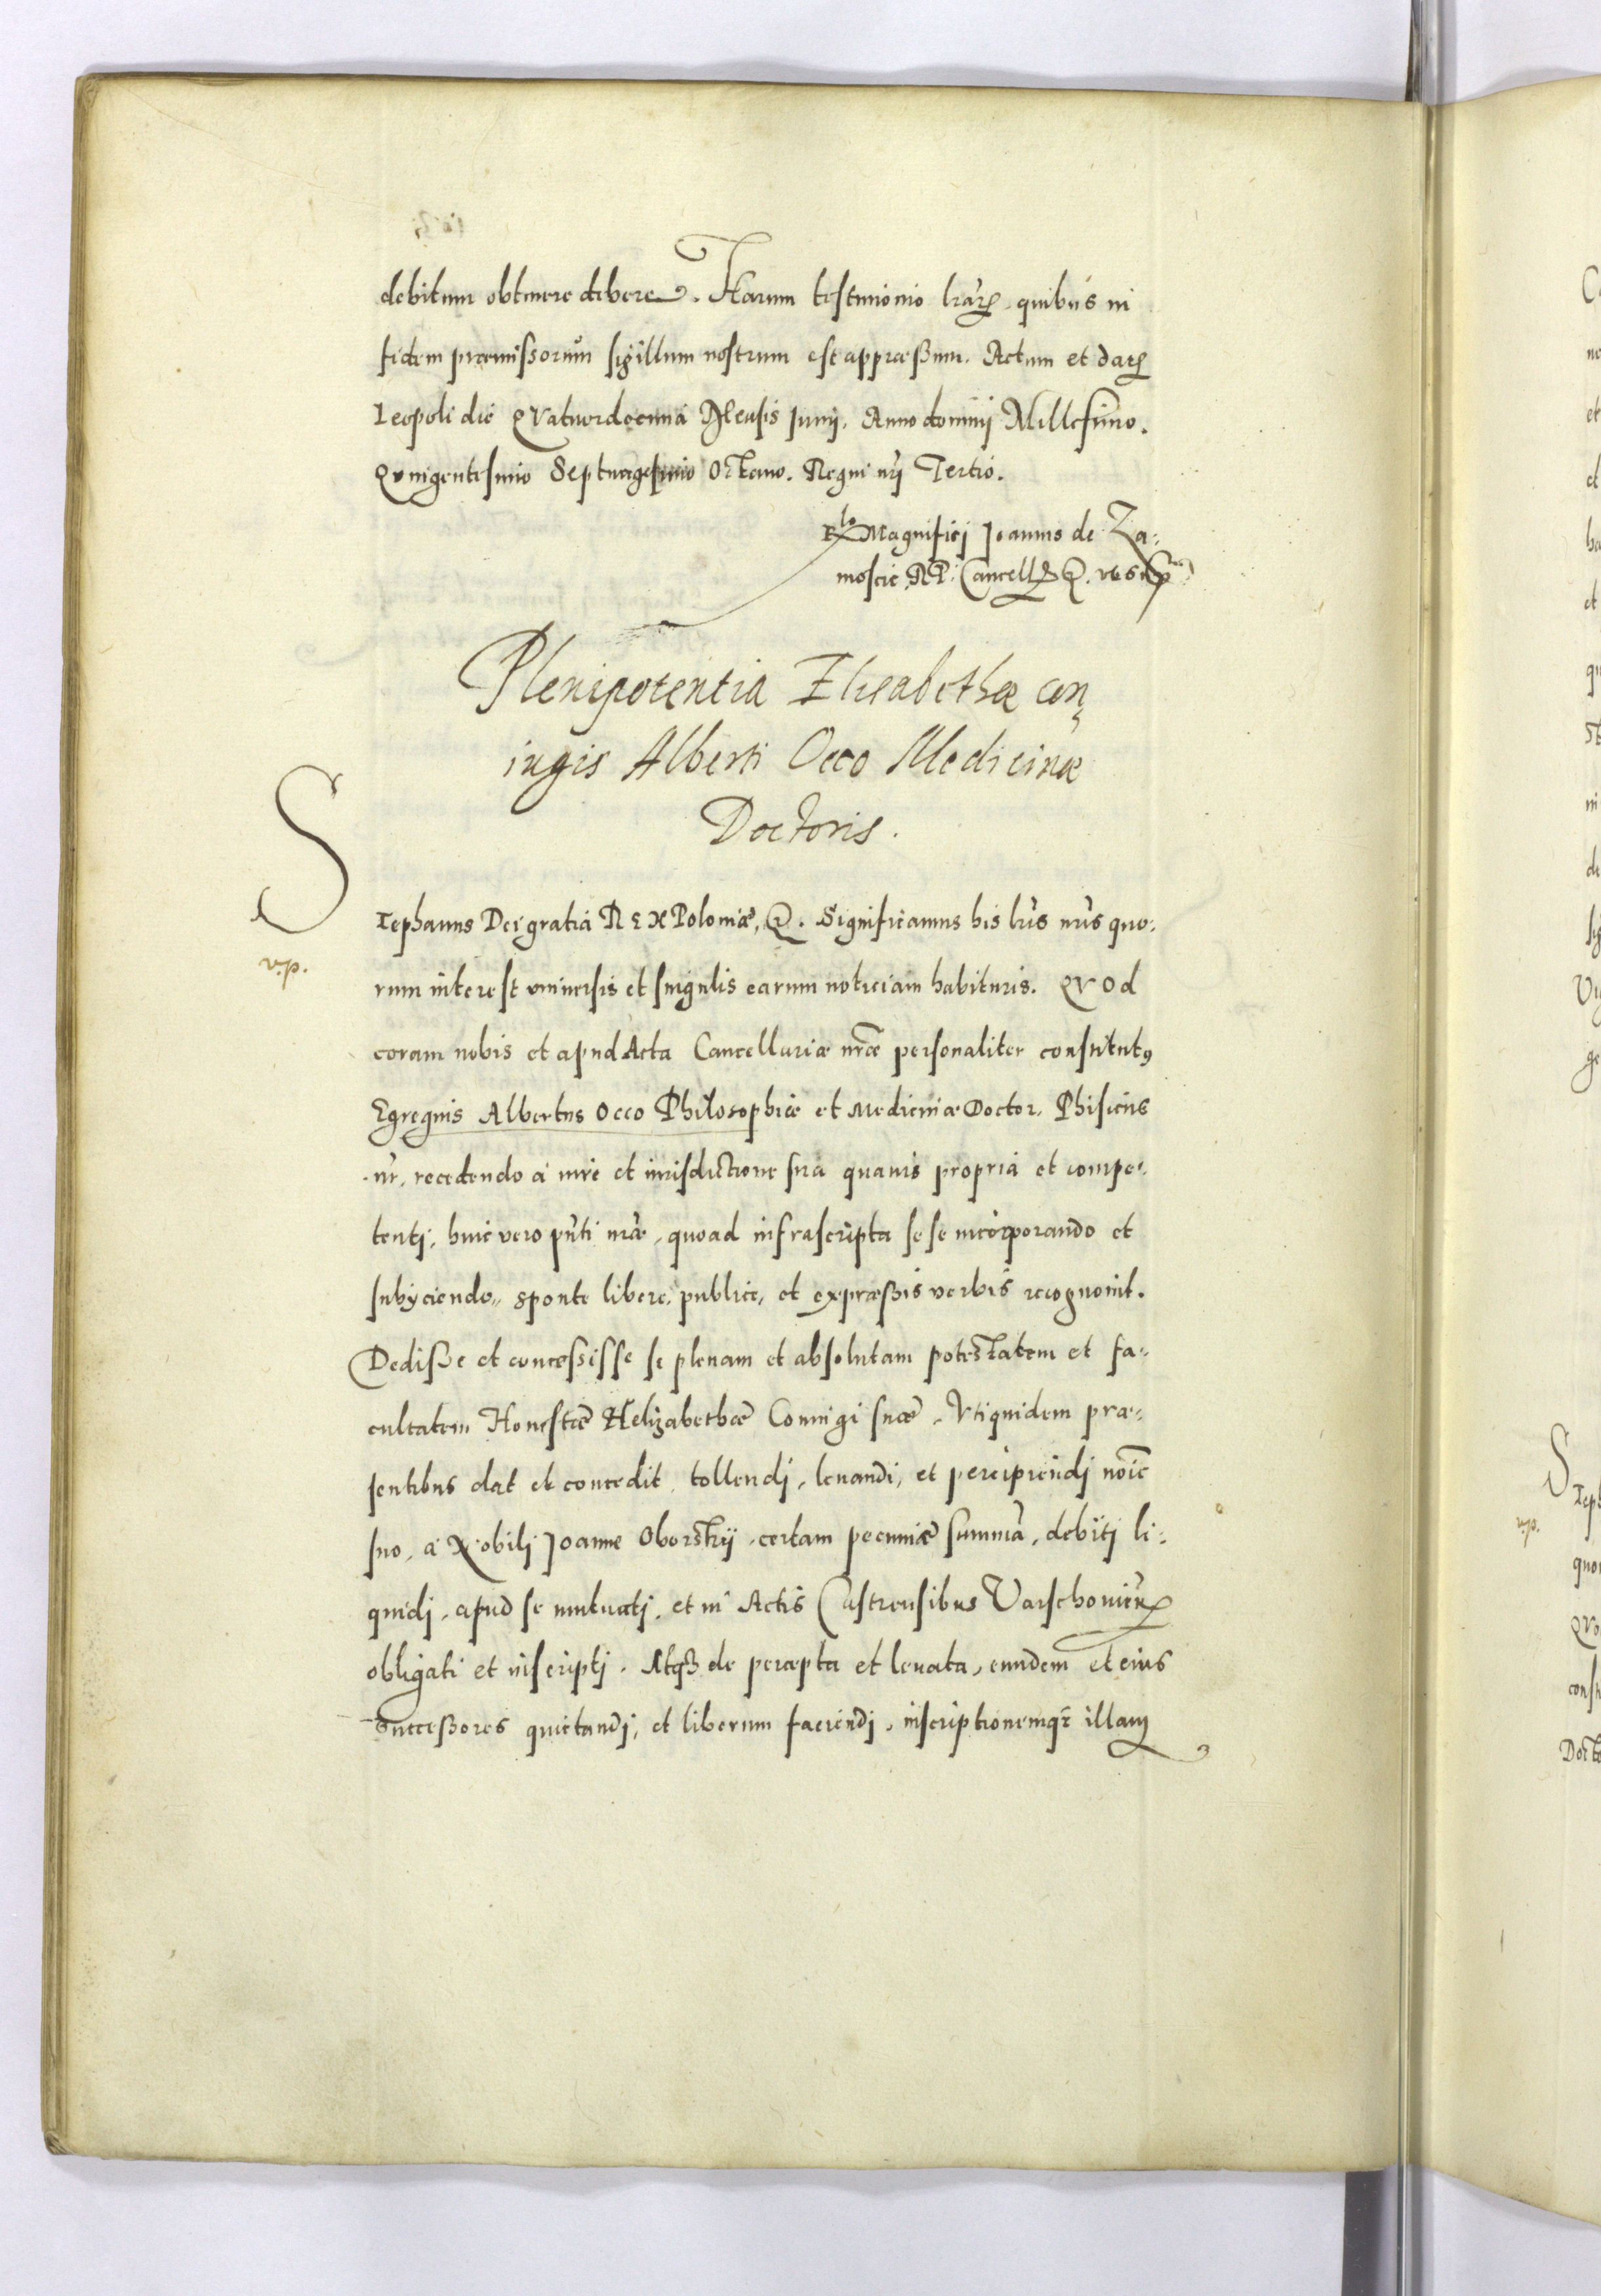 debitum obtinere debere. Harum testimonio lrarum quibus in
fidem præmissorum sigillum nostrum est appræssum. Actum et datum
Leopoli die Qvatuordecima Mensis Junij. Anno dominij Millesimo.
Qvingentesimo Septuagesimo Octavo. Regni nrj Tertio.
Rlo Magnifici Joannis de Za:
moscie RP. Cancell
Plenipotentia Elisabethæ con
iugis Alberti Occo Medicinæ
Doctoris.
Stephanus Dei gratia REX Poloniæ, &. Significamus his lris nris quo:
v.p.
rum interest vniuersis et singulis earum noticiam habituris. QVOd
coram nobis et apud Acta Cancellariæ nræ personaliter constitutus
Egregius Albertus Occo Philosophiæ et Medicinæ Doctor, Phisicus
nr, recedendo a iure et iurisdictione sua quauis propria et compe:
tenti, huic vero pnti nræ, quoad infrascripta se se incorporando et
subijciendo, sponte libere, publice, et expræssis verbis recognouit.
Dedisse et concessisse se plenam et absolutam potestatem et fa:
cultatem Honestæ Helizabethæ Coniugi suæ, Vti quidem præ:
sentibus dat et concedit, tollendj, leuandi, et percipiendj noie
suo, a Nobili Joanne Oborskij, certam pecuniæ summa, debiti li:
quidj, apud se mutuatj, et in Actis Castrensibus Varschouien
obligati et inscriptj. Atqz de percepta et leuata, eundem et eius
successores quietandj, et liberum faciendj, inscriptionemqz illam